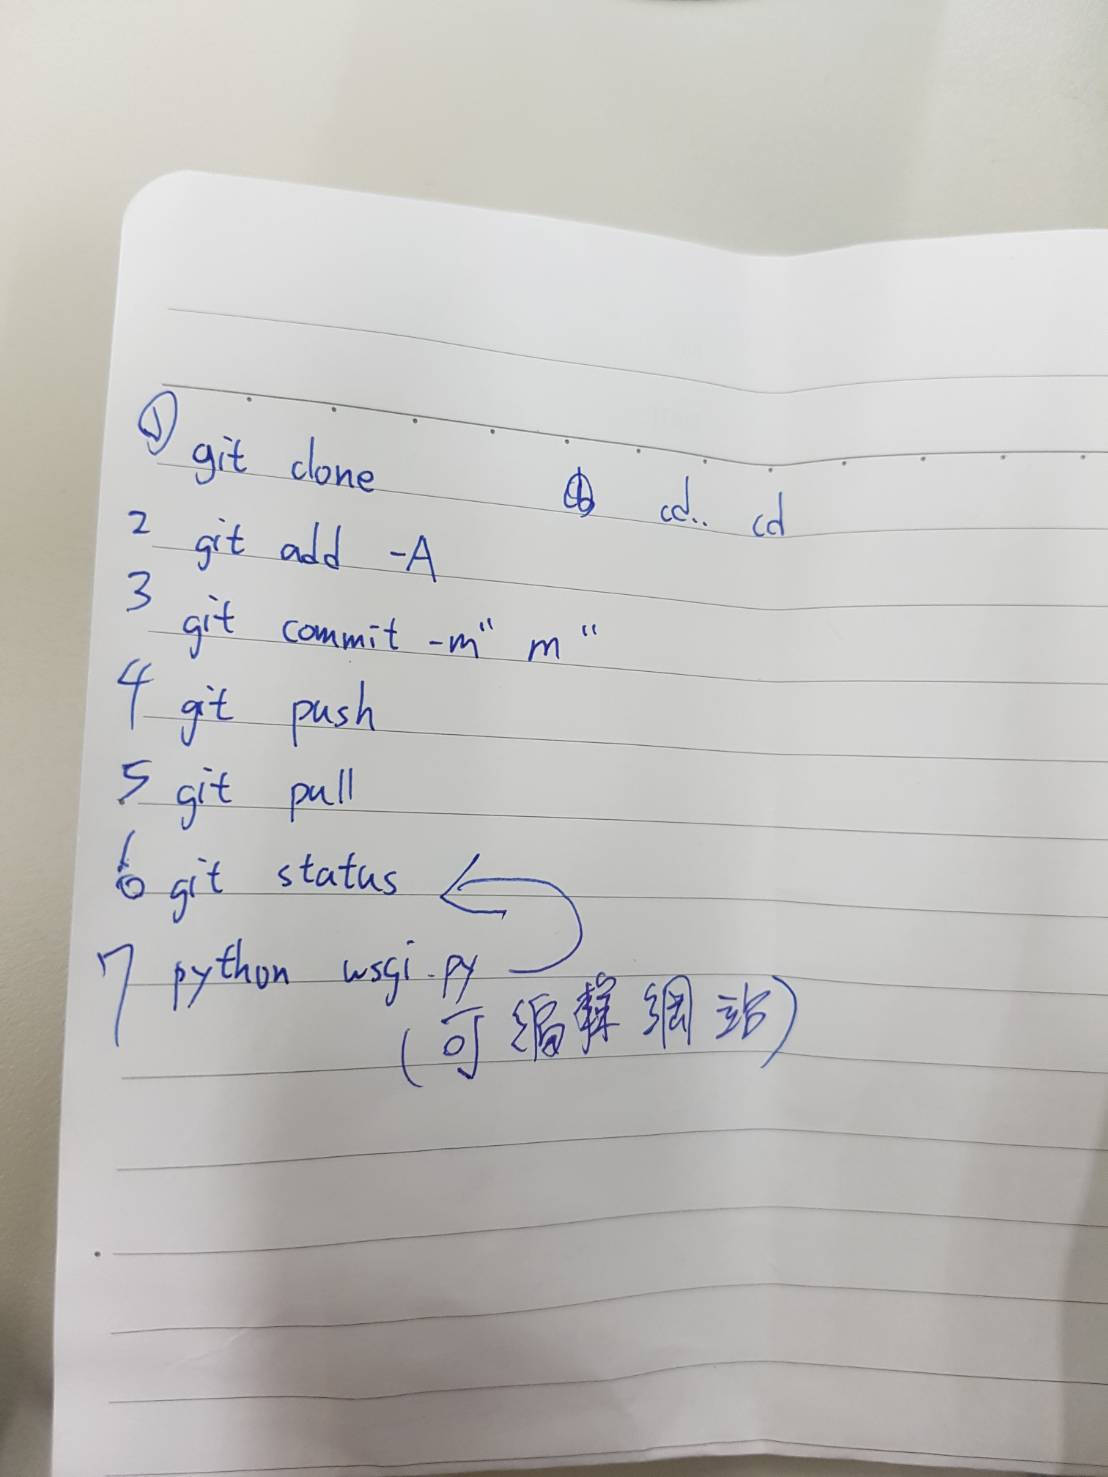 ① git clone
cd.. cd
2 git add -A
3 git commit -m" m"
4 git push
5 git pull
6 git status
7 python wsgi.py
(可編輯網站)